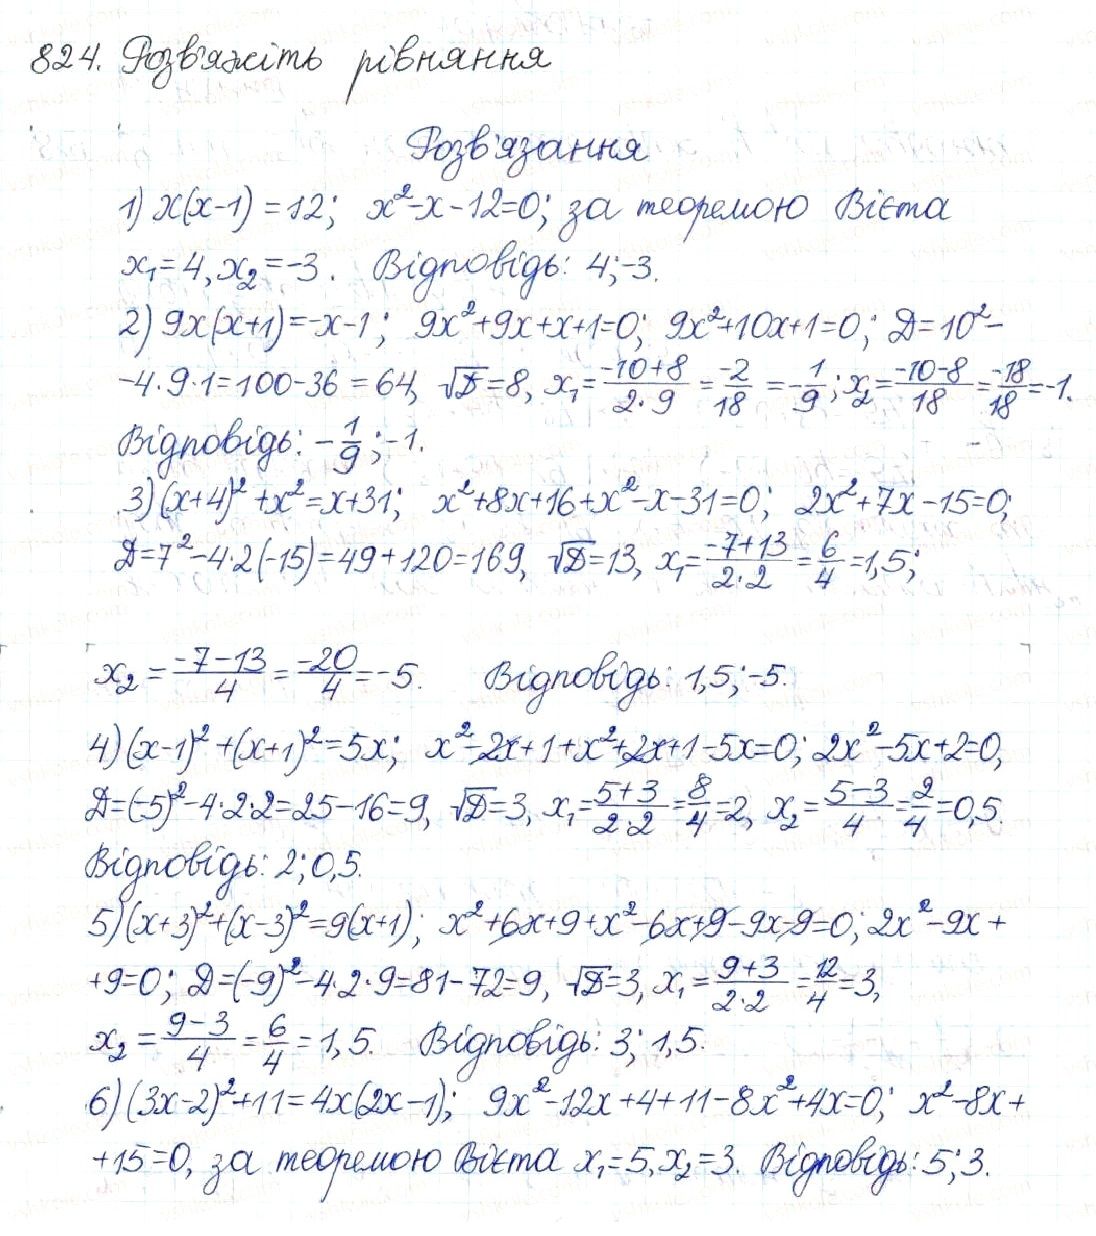 824. Розв'яжіть рівняння
Розв'язання
1) x(x-1) = 12; x²-x-12=0; за теоремою Вієта
x₁=4, x₂=-3. Відповідь: 4;-3.
2) 9x(x+1)=-x-1; 9x²+9x+x+1=0; 9x²+10x+1=0; D=10²-
-4·9·1=100-36=64, √D=8, x₁=(-10+8)/(2·9)=-2/18=-1/9; x₂=(-10-8)/18=-18/18=-1.
Відповідь: -1/9;-1.
3) (x+4)²+x²=x+31; x²+8x+16+x²-x-31=0; 2x²+7x-15=0;
D=7²-4·2(-15)=49+120=169, √D=13, x₁=(-7+13)/(2·2)=6/4=1,5;
x₂=(-7-13)/4=-20/4=-5. Відповідь: 1,5;-5.
4) (x-1)²+(x+1)²=5x; x²-2x+1+x²+2x+1-5x=0; 2x²-5x+2=0,
D=(-5)²-4·2·2=25-16=9, √D=3, x₁=(5+3)/(2·2)=8/4=2, x₂=(5-3)/4=2/4=0,5.
Відповідь: 2;0,5.
5) (x+3)²+(x-3)²=9(x+1); x²+6x+9+x²-6x+9-9x-9=0; 2x²-9x+
+9=0; D=(-9)²-4·2·9=81-72=9, √D=3, x₁=(9+3)/(2·2)=12/4=3,
x₂=(9-3)/4=6/4=1,5. Відповідь: 3; 1,5.
6) (3x-2)²+11=4x(2x-1); 9x²-12x+4+11-8x²+4x=0; x²-8x+
+15=0, за теоремою Вієта x₁=5, x₂=3. Відповідь: 5;3.